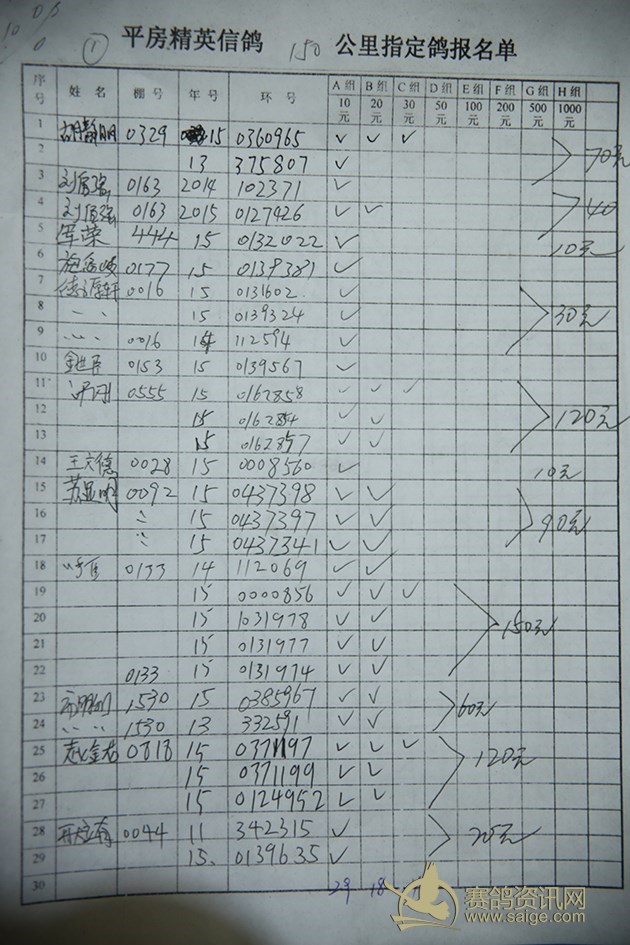 ① 平房精英信鸽 150 公里指定鸽报名单
序号 姓名 棚号 年号 环号 A组 10元 B组 20元 C组 30元 D组 50元 E组 100元 F组 200元 G组 500元 H组 1000元
1 胡静明 0329 15 0360965 ✓ ✓ ✓
2 13 375807 ✓ 70元
3 0163 2014 102371 ✓
4 0163 2015 0127426 ✓ ✓ 40
5 荣 444 15 0132022 ✓ 10元
6 0177 15 0139381 ✓
7 轩 0016 15 0131602 ✓
8 〃 〃 15 0139324 ✓ 30元
9 〃 〃 0016 14 112594 ✓
10 0153 15 0139567 ✓
11 0555 15 0162858 ✓ ✓ ✓
12 15 016284 ✓ ✓ 120元
13 15 0162857 ✓ ✓
14 王文德 0028 15 0008560 ✓ 10元
15 苏显明 0092 15 0437398 ✓ ✓
16 〃 15 0437397 ✓ ✓ 90元
17 〃 15 0437341 ✓ ✓
18 0133 14 112069 ✓ ✓
19 15 0000856 ✓ ✓ ✓
20 15 1031978 ✓ ✓ 150元
21 15 0131977 ✓ ✓
22 0133 15 0131974 ✓ ✓
23 1530 15 0385967 ✓ ✓
24 〃 〃 1530 13 332591 ✓ ✓ 60元
25 0818 15 0371197 ✓ ✓ ✓ 120元
26 15 0371199 ✓ ✓
27 15 0124952 ✓ ✓
28 0044 11 342315 ✓ 20元
29 15 0139635 ✓
30 29 18
赛鸽资讯网
www.saige.com